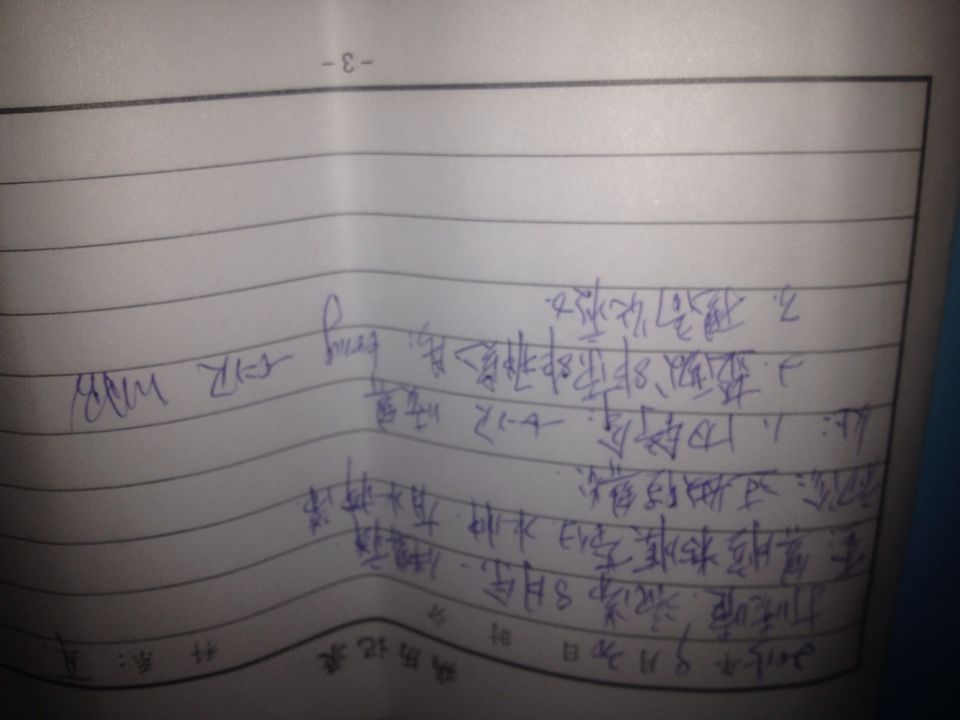 病历记录
2015年 9月30日 时 分 科 系: 耳
打喷嚏、流涕8月余, 伴鼻痒
查: 鼻腔粘膜苍白 水肿 有水样涕
初诊: 过敏性鼻炎
处: 1、内舒拿: 一次 喷鼻
2. 盐酸非索非那定片: 60mg 二次
3. 提高免疫力
-3-